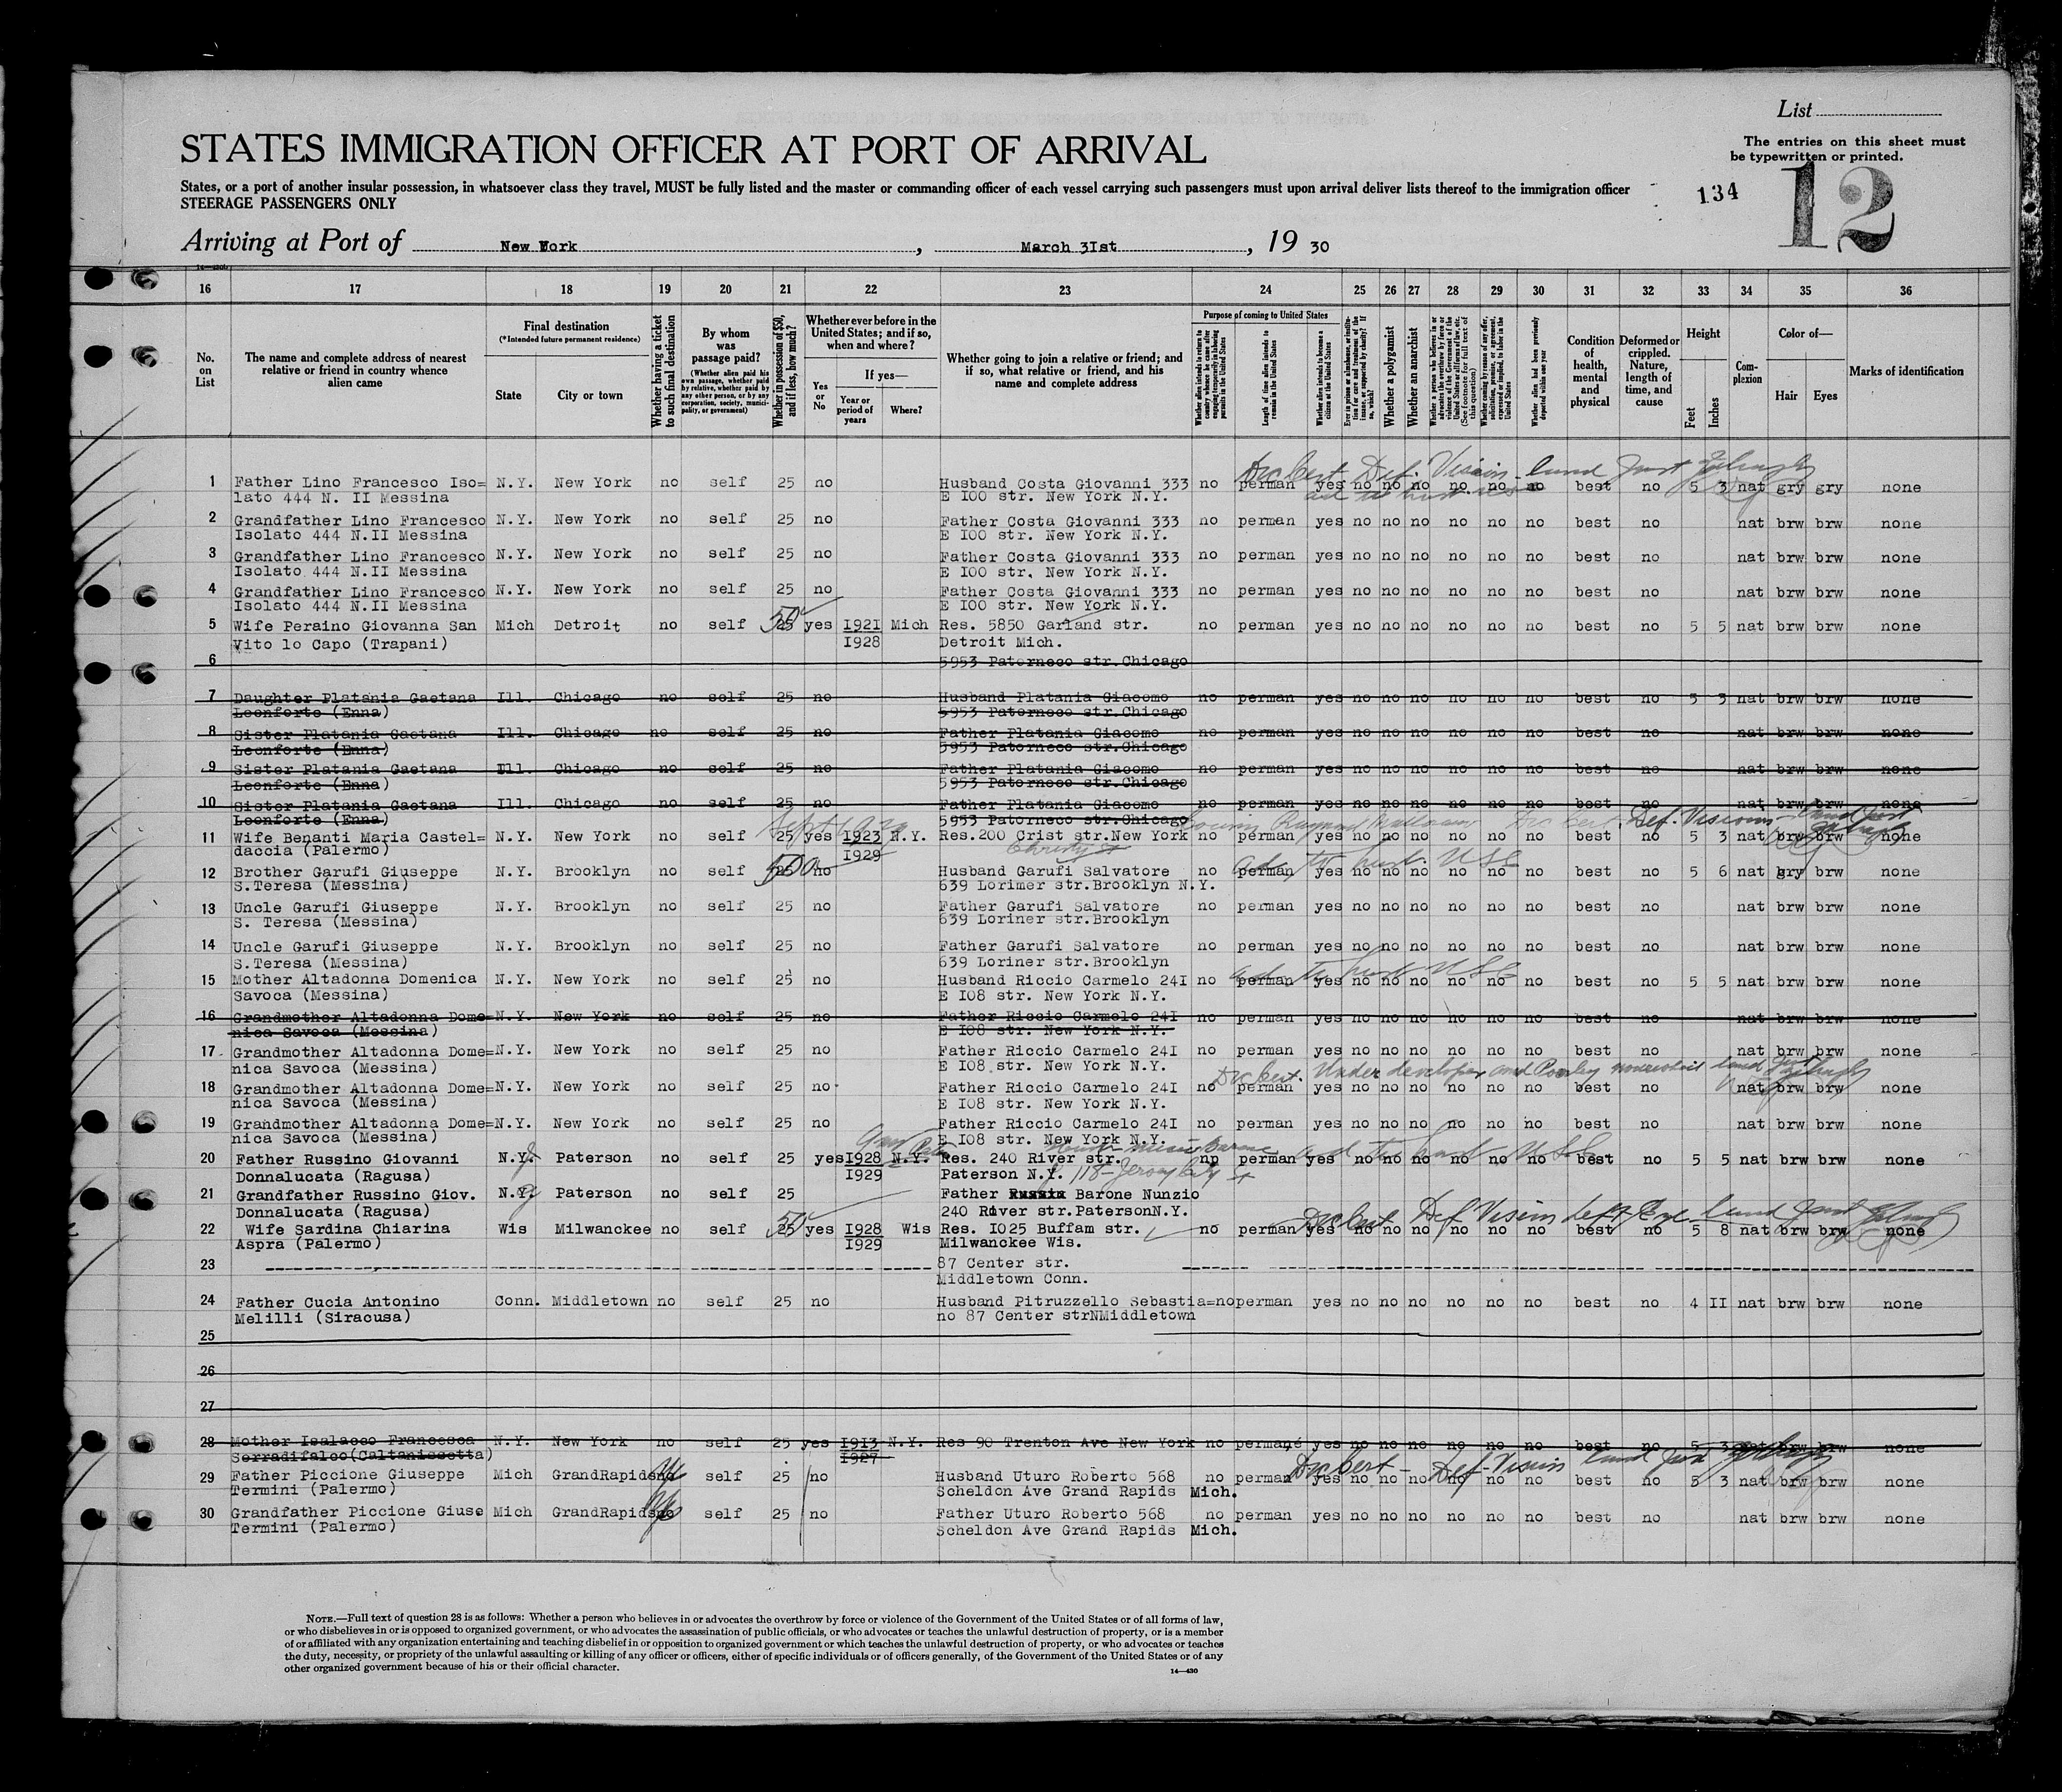 List
The entries on this sheet must
be typewritten or printed.
STATES IMMIGRATION OFFICER AT PORT OF ARRIVAL
States, or a port of another insular possession, in whatsoever class they travel, MUST be fully listed and the master or commanding officer of each vessel carrying such passengers must upon arrival deliver lists thereof to the immigration officer
STEERAGE PASSENGERS ONLY
134
12
Arriving at Port of New York, March 3Ist, 19 30
16 17 18 19 20 21 22 23 24 25 26 27 28 29 30 31 32 33 34 35 36
No. on List
The name and complete address of nearest relative or friend in country whence alien came
Final destination
(*Intended future permanent residence)
State
City or town
Whether having a ticket to such final destination
By whom was passage paid?
(Whether alien paid his own passage, whether paid by relative, whether paid by any other person, or by any corporation, society, municipality, or government)
Whether in possession of $50, and if less, how much?
Whether ever before in the United States; and if so, when and where?
Yes or No
If yes—
Year or period of years
Where?
Whether going to join a relative or friend; and if so, what relative or friend, and his name and complete address
Purpose of coming to United States
Length of time alien intends to remain in the United States
Whether alien intends to become a citizen of the United States
Whether a polygamist
Whether an anarchist
Condition of health, mental and physical
Deformed or crippled. Nature, length of time, and cause
Height
Feet
Inches
Complexion
Color of—
Hair
Eyes
Marks of identification
1 Father Lino Francesco Iso= N.Y. New York no self 25 no Husband Costa Giovanni 333 no perman yes no no no no no no best no 5 3 nat gry gry none
lato 444 N. II Messina E I00 str. New York N.Y.
2 Grandfather Lino Francesco N.Y. New York no self 25 no Father Costa Giovanni 333 no perman yes no no no no no no best no nat brw brw none
Isolato 444 N.II Messina E I00 str. New York N.Y.
3 Grandfather Lino Francesco N.Y. New York no self 25 no Father Costa Giovanni 333 no perman yes no no no no no no best no nat brw brw none
Isolato 444 N.II Messina E I00 str. New York N.Y.
4 Grandfather Lino Francesco N.Y. New York no self 25 no Father Costa Giovanni 333 no perman yes no no no no no no best no nat brw brw none
Isolato 444 N.II Messina E I00 str. New York N.Y.
5 Wife Peraino Giovanna San Mich Detroit no self 50 yes I92I Mich Res. 5850 Garland str. no perman yes no no no no no no best no 5 5 nat brw brw none
Vito lo Capo (Trapani) I928 Detroit Mich.
6 5953 Paterneco str.Chicago
7 Daughter Platania Gaetana Ill. Chicago no self 25 no Husband Platania Giacomo no perman yes no no no no no no best no 5 3 nat brw brw none
Leonforte (Enna) 5953 Paterneco str.Chicago
8 Sister Platania Gaetana Ill. Chicago no self 25 no Father Platania Giacomo no perman yes no no no no no no best no nat brw brw none
Leonforte (Enna) 5953 Paterneco str.Chicago
9 Sister Platania Gaetana Ill. Chicago no self 25 no Father Platania Giacomo no perman yes no no no no no no best no nat brw brw none
Leonforte (Enna) 5953 Paterneco str.Chicago
10 Sister Platania Gaetana Ill. Chicago no self 25 no Father Platania Giacomo no perman yes no no no no no no best no nat brw brw none
Leonforte (Enna) 5953 Paterneco str.Chicago
11 Wife Benanti Maria Castel= N.Y. New York no self 25 yes I923 N.Y. Res.200 Crist str.New York no perman yes no no no no no no best no 5 3 nat brw brw none
daccia (Palermo) I929
12 Brother Garufi Giuseppe N.Y. Brooklyn no self 50 no Husband Garufi Salvatore no perman yes no no no no no no best no 5 6 nat gry brw none
S.Teresa (Messina) 639 Lorimer str.Brooklyn N.Y.
13 Uncle Garufi Giuseppe N.Y. Brooklyn no self 25 no Father Garufi Salvatore no perman yes no no no no no no best no nat brw brw none
S. Teresa (Messina) 639 Loriner str.Brooklyn
14 Uncle Garufi Giuseppe N.Y. Brooklyn no self 25 no Father Garufi Salvatore no perman yes no no no no no no best no nat brw brw none
S.Teresa (Messina) 639 Loriner str.Brooklyn
15 Mother Altadonna Domenica N.Y. New York no self 25 no Husband Riccio Carmelo 24I no perman yes no no no no no no best no 5 5 nat brw brw none
Savoca (Messina) E I08 str. New York N.Y.
16 Grandmother Altadonna Dome= N.Y. New York no self 25 no Father Riccio Carmelo 24I no perman yes no no no no no no best no nat brw brw none
nica Savoca (Messina) E I08 str. New York N.Y.
17 Grandmother Altadonna Dome= N.Y. New York no self 25 no Father Riccio Carmelo 24I no perman yes no no no no no no best no nat brw brw none
nica Savoca (Messina) E I08 str. New York N.Y.
18 Grandmother Altadonna Dome= N.Y. New York no self 25 no Father Riccio Carmelo 24I no perman yes no no no no no no best no nat brw brw none
nica Savoca (Messina) E I08 str. New York N.Y.
19 Grandmother Altadonna Dome= N.Y. New York no self 25 no Father Riccio Carmelo 24I no perman yes no no no no no no best no nat brw brw none
nica Savoca (Messina) E I08 str. New York N.Y.
20 Father Russino Giovanni N.Y. Paterson no self 25 yes I928 N.Y. Res. 240 River str. no perman yes no no no no no no best no 5 5 nat brw brw none
Donnalucata (Ragusa) I929 Paterson N.Y.
21 Grandfather Russino Giov. N.Y. Paterson no self 25 Father Barone Nunzio
Donnalucata (Ragusa) 240 River str.PatersonN.Y.
22 Wife Sardina Chiarina Wis Milwanckee no self 50 yes I928 Wis Res. I025 Buffam str. no perman yes no no no no no no best no 5 8 nat brw brw none
Aspra (Palermo) I929 Milwanckee Wis.
23 87 Center str.
Middletown Conn.
24 Father Cucia Antonino Conn. Middletown no self 25 no Husband Pitruzzello Sebastia= no perman yes no no no no no no best no 4 II nat brw brw none
Melilli (Siracusa) no 87 Center strNMiddletown
25
26
27
28 Mother Isalacco Francesca N.Y. New York no self 25 yes I9I3 N.Y. Res 90 Trenton Ave New York no perman yes no no no no no no best no 5 3 nat brw brw none
Serradifalco(Caltanissetta) I927
29 Father Piccione Giuseppe Mich GrandRapids no self 25 no Husband Uturo Roberto 568 no perman yes no no no no no no best no 5 3 nat brw brw none
Termini (Palermo) Scheldon Ave Grand Rapids Mich.
30 Grandfather Piccione Giuse Mich GrandRapids no self 25 no Father Uturo Roberto 568 no perman yes no no no no no no best no nat brw brw none
Termini (Palermo) Scheldon Ave Grand Rapids Mich.
NOTE.—Full text of question 28 is as follows: Whether a person who believes in or advocates the overthrow by force or violence of the Government of the United States or of all forms of law,
or who disbelieves in or is opposed to organized government, or who advocates the assassination of public officials, or who advocates or teaches the unlawful destruction of property, or is a member
of or affiliated with any organization entertaining and teaching disbelief in or opposition to organized government or which teaches the unlawful destruction of property, or who advocates or teaches
the duty, necessity, or propriety of the unlawful assaulting or killing of any officer or officers, either of specific individuals or of officers generally, of the Government of the United States or of any
other organized government because of his or their official character.
14—430